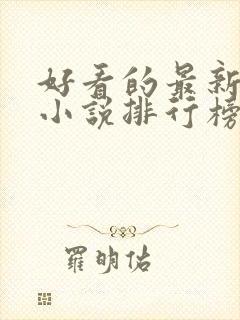 好看的最新
小说排行榜
羅明佑